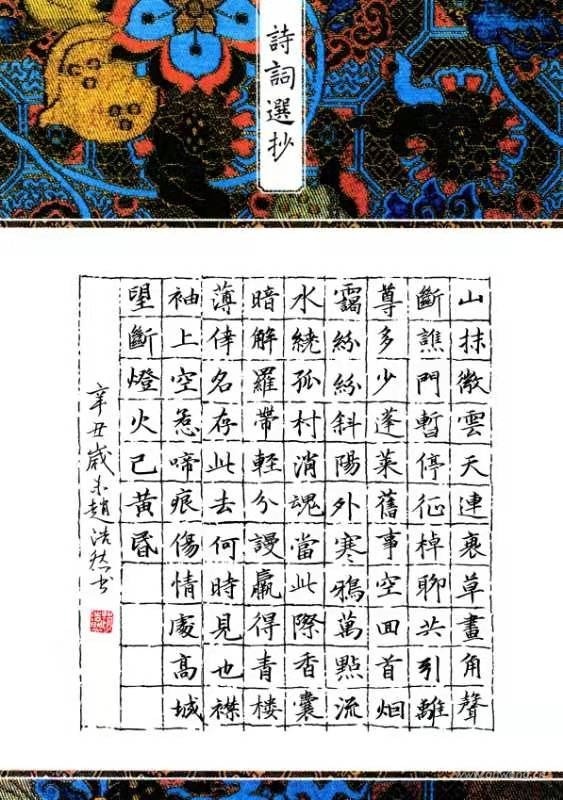 詩詞選抄
山抹微雲天連衰草畫角聲
斷譙門暫停征棹聊共引離
尊多少蓬萊舊事空回首烟
靄紛紛斜陽外寒鴉萬點流
水繞孤村消魂當此際香囊
暗解羅帶輕分謾贏得青楼
薄倖名存此去何時見也襟
袖上空惹啼痕傷情處高城
望斷燈火已黃昏
辛丑歲末趙浩然书